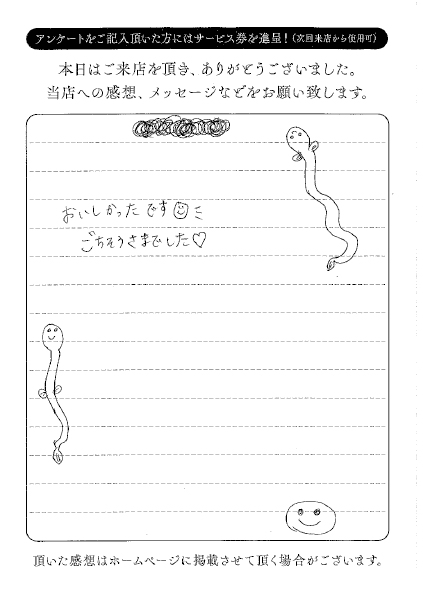 アンケートをご記入頂いた方にはサービス券を進呈！(次回来店から使用可)
本日はご来店を頂き、ありがとうございました。
当店への感想、メッセージなどをお願い致します。
おいしかったです
ごちそうさまでした♡
頂いた感想はホームページに掲載させて頂く場合がございます。